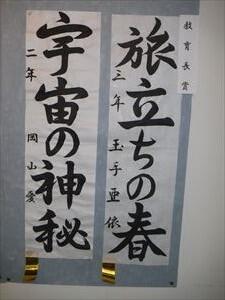 教育長賞
旅立ちの春
三年 玉手亜依
宇宙の神秘
二年 岡山愛